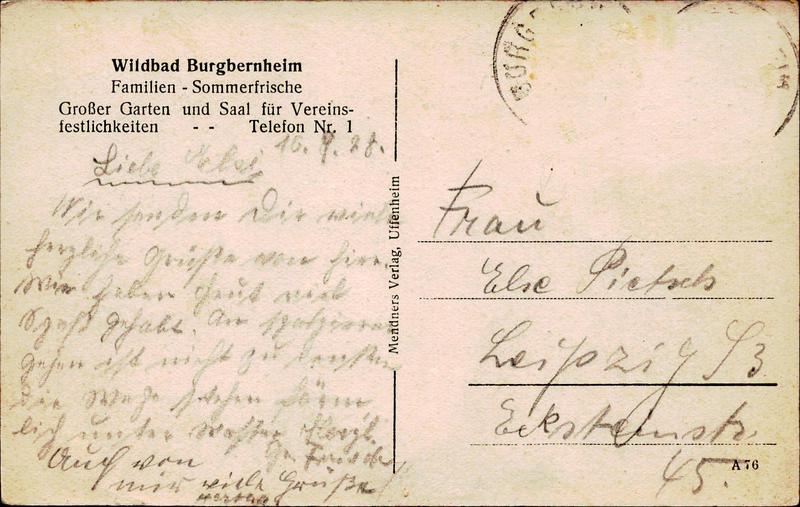 Wildbad Burgbernheim
Familien - Sommerfrische
Großer Garten und Saal für Vereins-
festlichkeiten - - Telefon Nr. 1
Liebe
Wir senden Dir viele
herzliche Grüße von hier.
Wir haben heut viel
Spaß gehabt. An spazieren
gehen ist nicht zu denken
die Wege stehen förm
lich unter Wasser. Herzl.
Gr.
Auch von
mir viele Grüße
Mendners Verlag, Uffenheim
BURG
Frau
Else Pietsch
Leipzig S3
Ecksteinstr.
45.
A 76